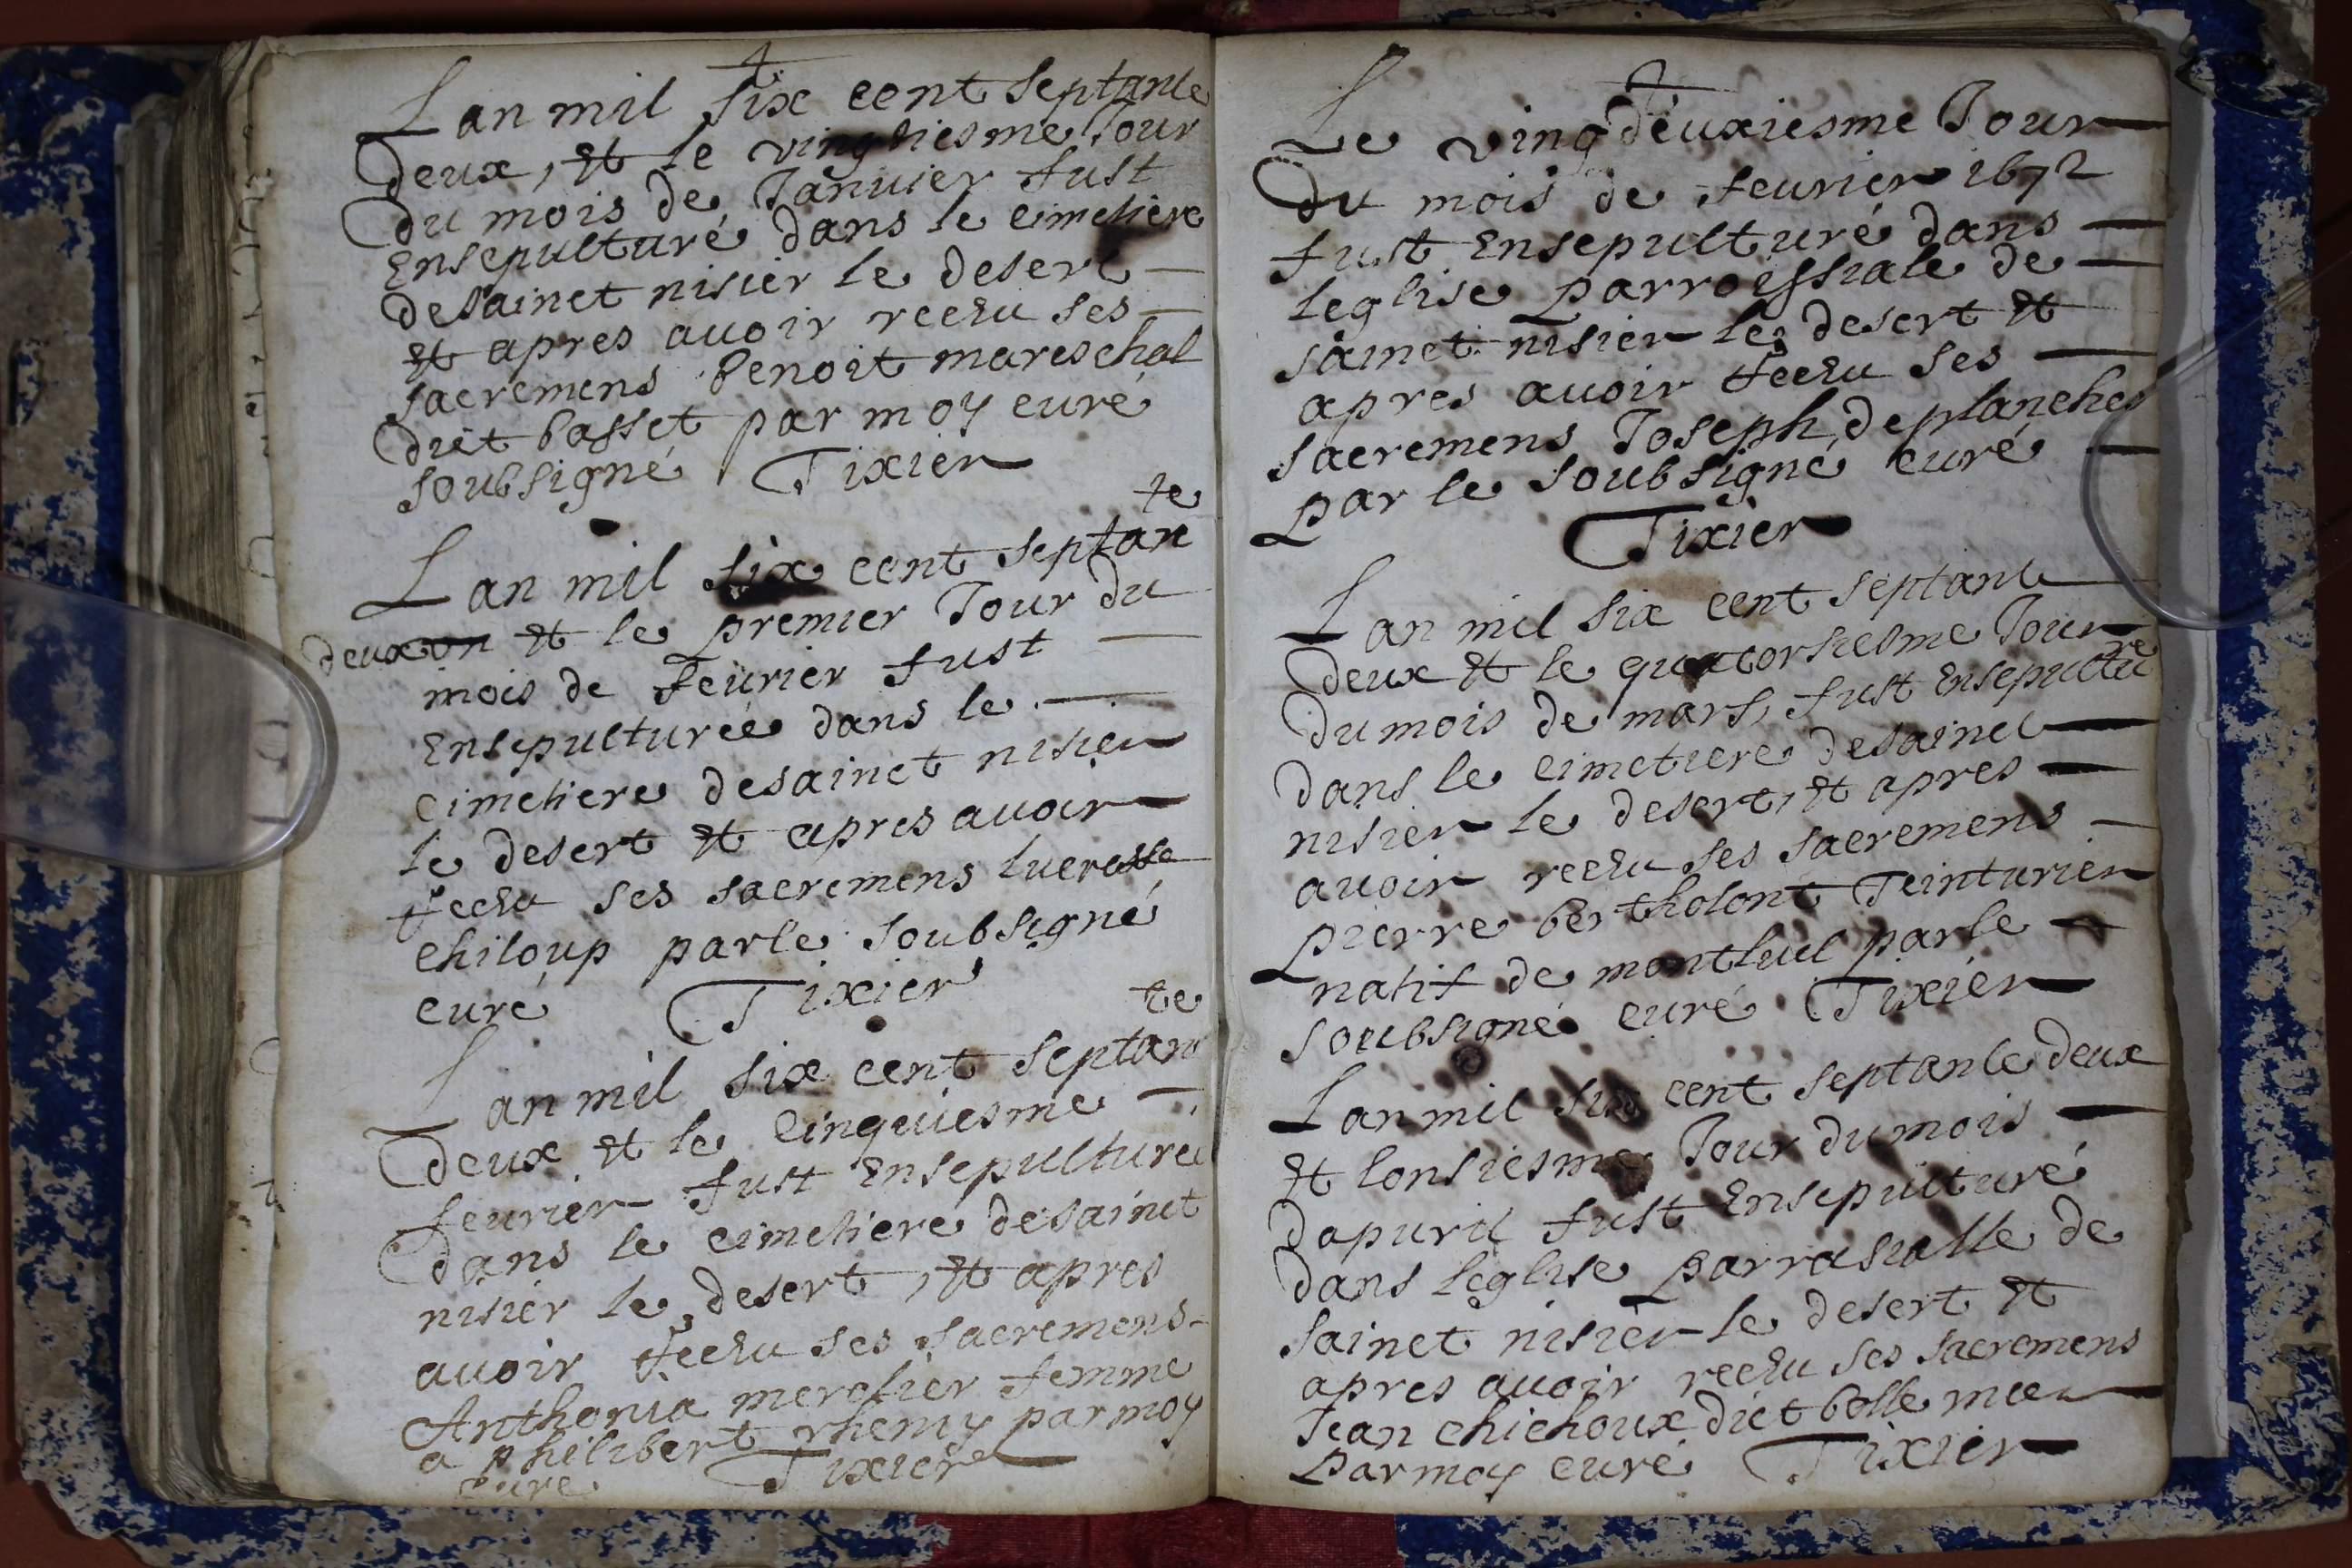 Lan mil six cent septante
deux, et le vingtiesme Jour
du mois de Januier fust
Ensepulturé dans le cimetiere
de sainct nisier le desert
et apres auoir receu ses
sacremens benoit mareschal
dict basset par moy curé
soubsigné Tixier
Lan mil six cent septante
deux un et le premier Jour du
mois de feurier fust
Ensepulturée dans le
cimetiere de sainct nisier
le desert et apres auoir
receu ses sacremens lucresse
chiloup par le soubsigné
curé Tixier
Lan mil six cent septante
deux et le cinquiesme
feurier fust ensepulturée
dans le cimetiere de sainct
nisier le desert, et apres
auoir receu ses sacremens
Anthonia mercsier femme
a philibert rhemy par moy
curé Tixier
Le vingdeuxiesme Jour
du mois de feurier 1672
fust Ensepulturé dans
leglise parroissiale de
sainct nisier le desert et
apres auoir receu ses
sacremens Joseph deplanches
par le soubsigné curé
Tixier
Lan mil six cent septante
deux et le quatorsiesme Jour
du mois de mars, fust Ensepulturé
dans le cimetiere de sainct
nisier le desert, et apres
auoir receu ses sacremens
pierre bertholont Teinturier
natif de montluel par le
soubsigné curé Tixier
Lan mil six cent septante deux
et lonsiesme Jour du mois
dapuril fust Ensepulturé
dans leglise parrasialle de
sainct nisier le desert et
apres auoir receu ses sacremens
Jean chichoux dict belle mee
par moy curé Tixier